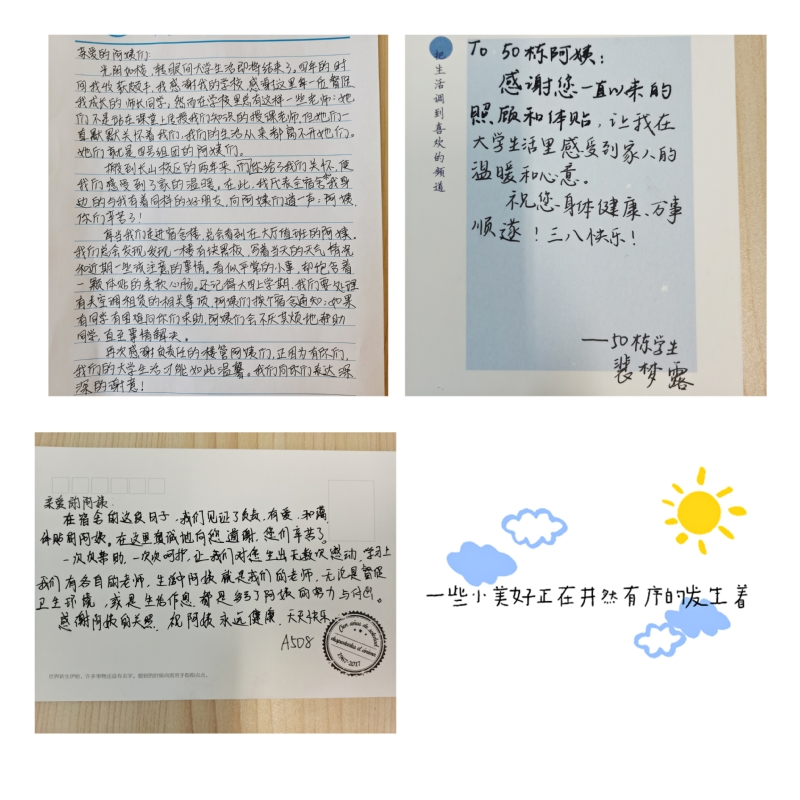 亲爱的阿姨们:
光阴如梭，转眼间大学生活即将结束了。四年的时
间我收获颇丰，我感谢我的学校，感谢这里每一所督促
我成长的师长同学，然而在学校里总有这样一些老师:她
们不是站在课堂上传授我们知识的授课老师，但她们一
直默默关怀着我们，我们的生活从来都离不开她们。
她们就是四号组团的阿姨们。
搬到长山校区的两年来，们您给了我们关怀，使
我们感受到了家的温暖。在此，我代表全宿舍我身
边的与我有着同样的好朋友，向阿姨们道一声:阿姨，
你们辛苦了!
每当我们走进宿舍楼，总会看到在大厅值班的阿姨。
我们总会发现，发现一楼有块黑板，写着当天的天气情况
和近期一些该注意的事情。看似平常的小事，却饱含着
一颗体贴的柔软心肠。还记得大四上学期，我们要处理
有关空调租赁的相关事项，阿姨们挨个宿舍通知;如果
有同学有困难向你们求助，阿姨们会不厌其烦地帮助
同学，直至事情解决。
再次感谢负责任的楼管阿姨们，正因为有你们，
我们的大学生活才能如此温馨。我们向你们表达深
深的谢意!
把生活调到喜欢的频道
To 50栋阿姨:
感谢您一直以来的
照顾和体贴，让我在
大学生活里感受到家人的
温暖和心意。
祝您身体健康、万事
顺遂!三八快乐!
——50栋学生
裴梦露
亲爱的阿姨:
在宿舍的这段日子，我们见证了负责，有爱，和蔼，
体贴的阿姨。在这里真诚地向您道谢，您们辛苦了。
一次次帮助，一次次呵护，让我们对您生出无数次感动，学习上
我们有各自的老师，生活中阿姨就是我们的老师，无论是督促
卫生环境，或是生活作息，都是包含了阿姨的努力与付出。
感谢阿姨的关照，祝阿姨永远健康，天天快乐
A508
Cien años de soledad
1967-2017
一些小美好正在井然有序的发生着